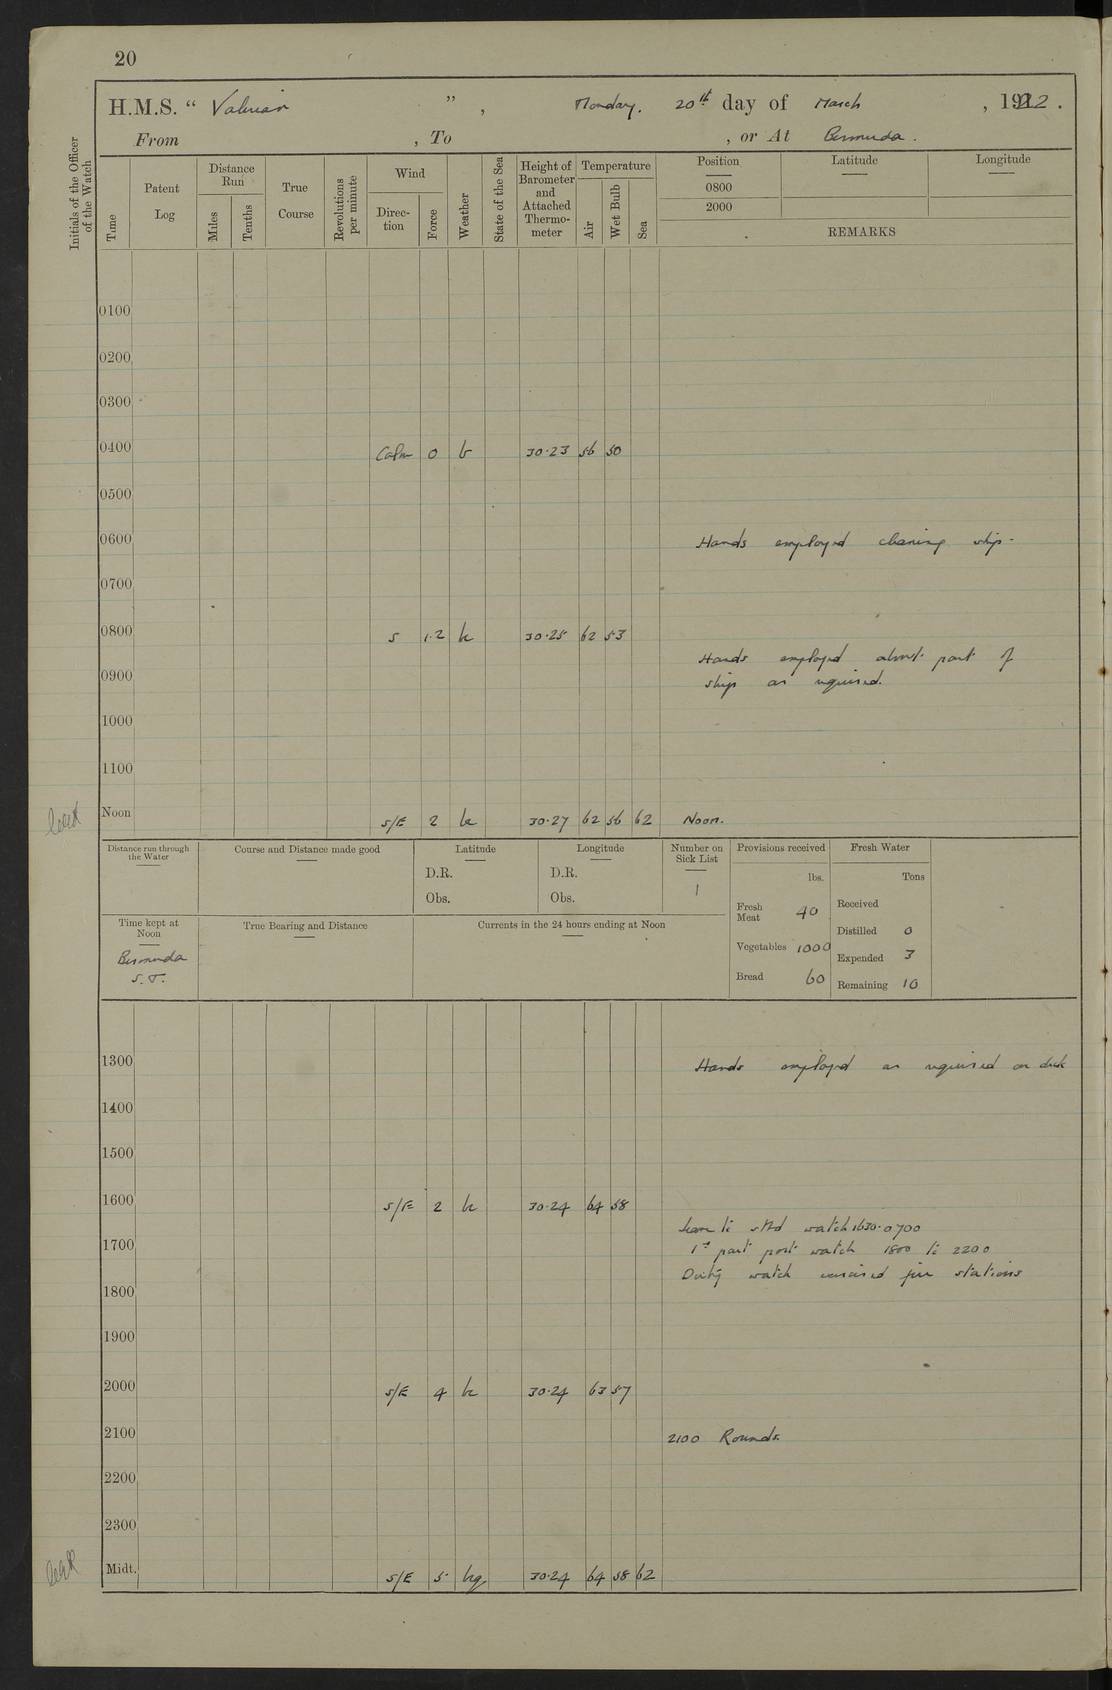 20
H.M.S. “ Valerian ” , Monday. 20th day of March , 1922.
From , To , or At Bermuda.
Initials of the Officer of the Watch
Time
Patent Log
Distance Run
Miles
Tenths
True Course
Revolutions per minute
Wind
Direc-tion
Force
Weather
State of the Sea
Height of Barometer and Attached Thermo-meter
Temperature
Air
Wet Bulb
Sea
Position Latitude Longitude
0800
2000
REMARKS
0100
0200
0300
0400 Calm 0 b 30.23 56 50
0500
0600 Hands employed cleaning ship.
0700
0800 S 1.2 bc 30.25 62 53
Hands employed about part of
0900 ship as required.
1000
1100
Noon S/E 2 bc 30.27 62 56 62 Noon.
Distance run through the Water
Course and Distance made good
Latitude
D.R.
Obs.
Longitude
D.R.
Obs.
Number on Sick List
1
Provisions received
lbs.
Fresh Meat 40
Vegetables 1000
Bread 60
Fresh Water
Tons
Received
Distilled 0
Expended 3
Remaining 10
Time kept at Noon
Bermuda
S.T.
True Bearing and Distance
Currents in the 24 hours ending at Noon
1300 Hands employed as required on deck
1400
1500
1600 S/E 2 bc 30.24 64 58
Leave to stbd watch 1630.0700
1700 1st part port watch 1800 to 2200
Duty watch exercised fire stations
1800
1900
2000 S/E 4 bc 30.24 63 57
2100 2100 Rounds.
2200
2300
Midt. S/E 5 bcq 30.24 64 58 62